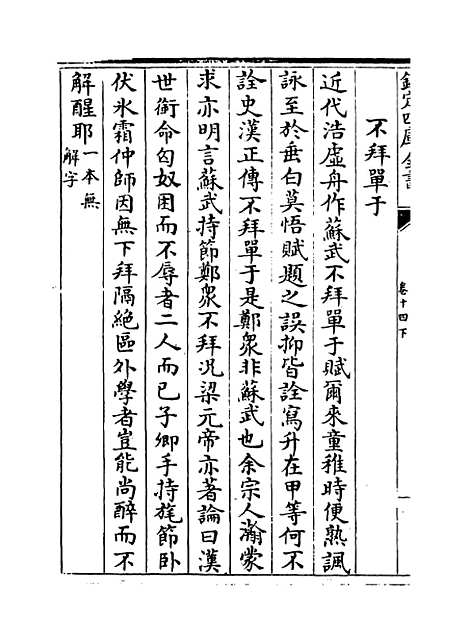 欽定四庫全書
卷十四下
不拜單于
近代浩虛舟作蘇武不拜單于賦爾來童稚時便熟諷
詠至於垂白莫悟賦題之誤抑皆詮寫升在甲等何不
詮史漢正傳不拜單于是鄭衆非蘇武也余宗人瀚蒙
求亦明言蘇武持節鄭衆不拜況梁元帝亦著論曰漢
世銜命匈奴困而不辱者二人而已子卿手持旄節卧
伏氷霜仲師固無下拜隔絶區外學者豈能尚醉而不
解醒耶一本無解字